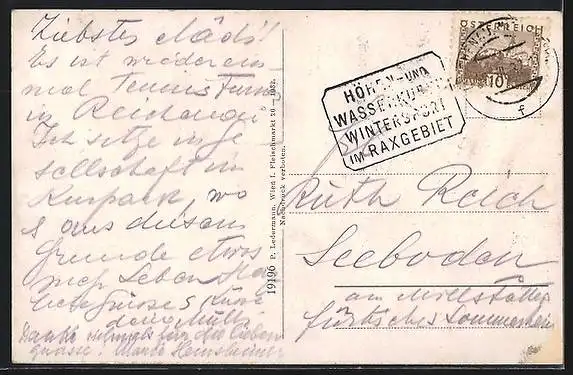 Liebstes Mädi!
Es ist wieder ein-
mal Tennis Turnier
in Reichenau
Ich sitze in Ge-
sellschaft im
Kurpark, wo
es aus diesem
Grunde etwas
mehr Leben
Küsse
deine Mutti
Danke für die lieben
19196 P. Ledermann, Wien I. Fleischmarkt 20 - 1932.
Nachdruck verboten.
ÖSTERREICH
10
HÖHEN- UND
WASSERKUREN
WINTERSPORT
IM RAXGEBIET
f
Ruth Reich
Seeboden
am Millstätter